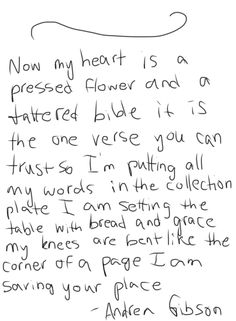 Now my heart is a
pressed flower and a
tattered bible it is
the one verse you can
trust so I'm putting all
my words in the collection
plate I am setting the
table with bread and grace
my knees are bent like the
corner of a page I am
saving your place
- Andrea Gibson